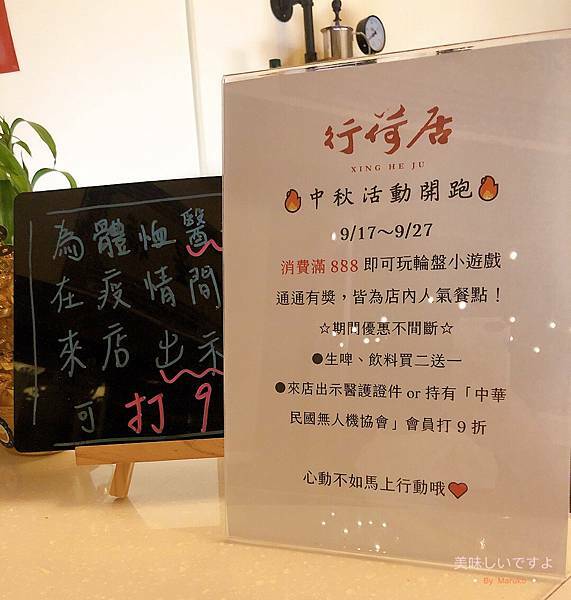 為體恤醫
在疫情間
來店出示
可打9
行荷居
XING HE JU
🔥中秋活動開跑🔥
9/17～9/27
消費滿888即可玩輪盤小遊戲
通通有獎，皆為店內人氣餐點！
☆期間優惠不間斷☆
●生啤、飲料買二送一
●來店出示醫護證件 or 持有「中華
民國無人機協會」會員打9折
心動不如馬上行動哦❤
美味しいですよ
By Maruko